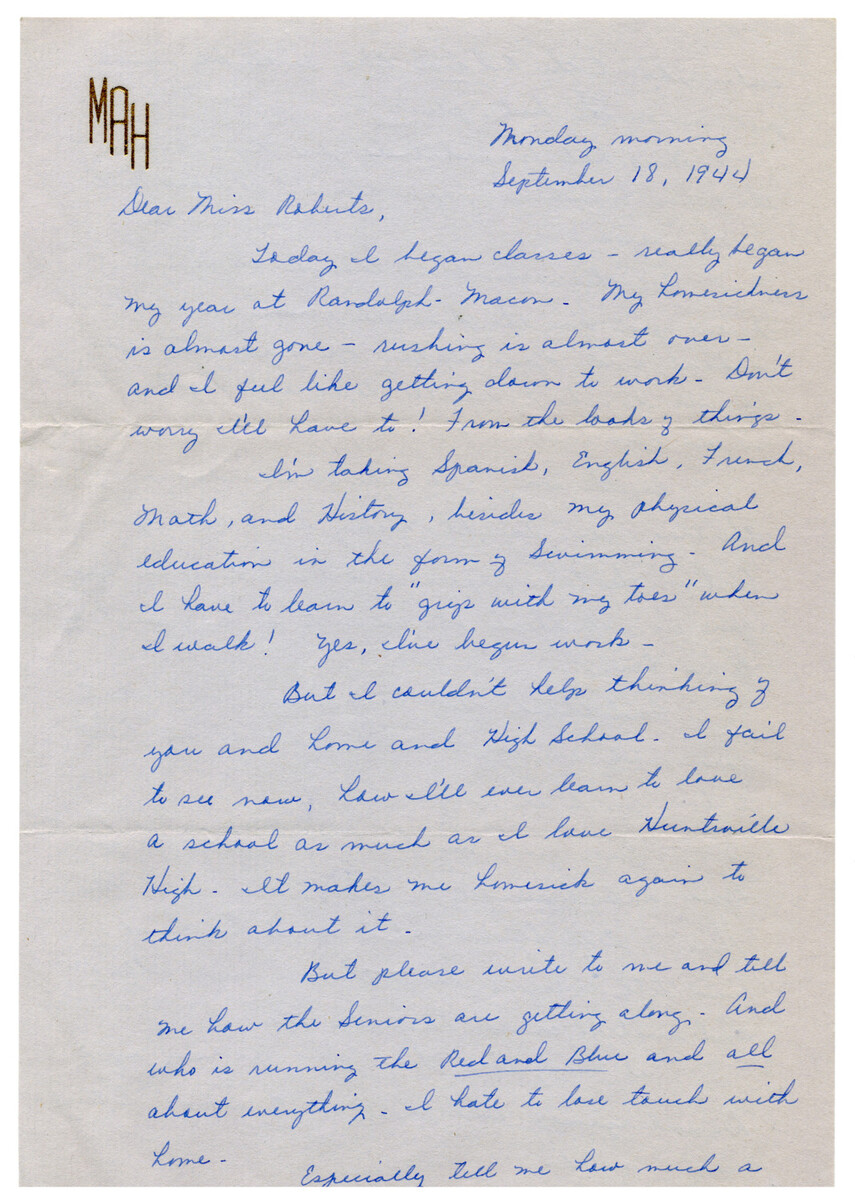 MAH
Monday morning
September 18, 1944
Dear Miss Roberts,
Today I began classes - really began
my year at Randolph-Macon. My homesickness
is almost gone - rushing is almost over -
and I feel like getting down to work. Don't
worry I'll have to! From the looks of things.
I'm taking Spanish, English, French,
Math, and History, besides my physical
education in the form of Swimming. And
I have to learn to "grip with my toes" when
I walk! Yes, I've begun work -
But I couldn't help thinking of
you and home and High School. I fail
to see now, how I'll ever learn to love
a school as much as I love Huntsville
High. It makes me homesick again to
think about it.
But please write to me and tell
me how the Seniors are getting along. And
who is running the Red and Blue and all
about everything. I hate to lose touch with
home.
Especially tell me how much a